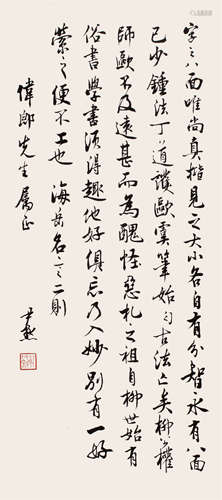 字之八面唯尚真楷見之大小各自有分智永有八面
已少鍾法丁道護歐虞筆始匀古法亡矣柳公權
師歐不及遠甚而為醜怪惡札之祖自柳世始有
俗書學書須得趣他好俱忘乃入妙別有一好
縈之便不工也 海岳名言二則
偉郎先生屬正
尹默